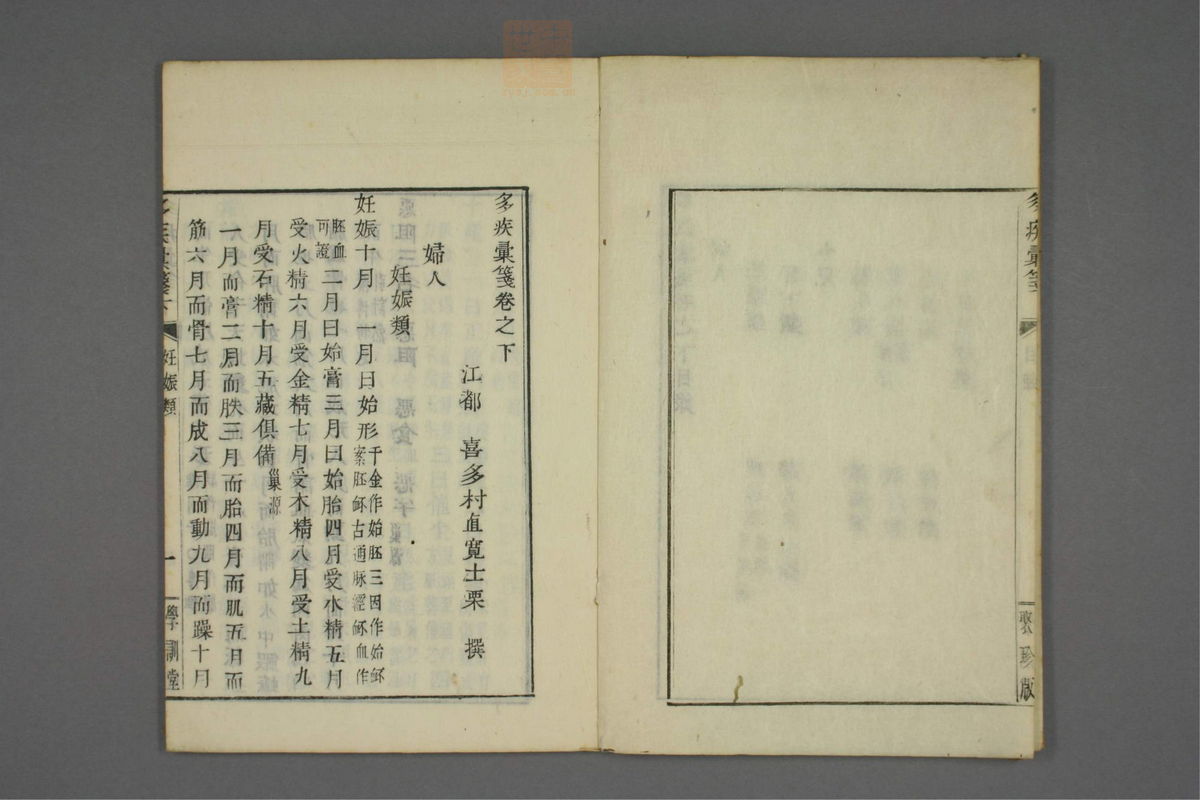 多疾彙箋
聚珍版
多疾彙箋卷之下
江都 喜多村直寬士栗 撰
婦人
妊娠類
妊娠十月 一月日始形千金作始胚三因作始䘑
案胚䘑古通脉經䘑血作
胚血
可證二月日始膏三月日始胎四月受水精五月
受火精六月受金精七月受木精八月受土精九
月受石精十月五藏俱備巢源
一月而膏二月而胅三月而胎四月而肌五月而
筋六月而骨七月而成八月而動九月而躁十月
多疾彙箋下
妊娠類
一
學訓堂